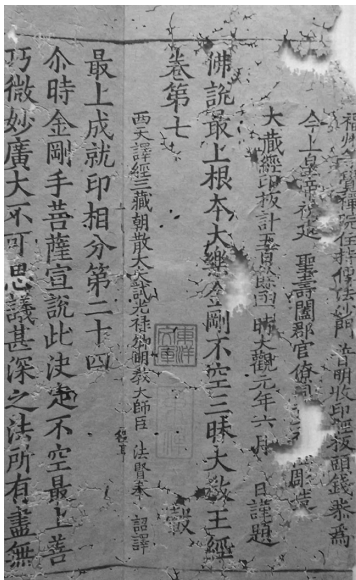 福州等覺禪院住持傳法沙門 普明收印經板頭錢恭為
今上皇帝祝延 聖壽闔郡官僚同 雕造
大藏經印板計五百餘函時大觀元年六月 日謹題
佛說最上根本大樂金剛不空三昧大教王經
卷第七 轂
西天譯經三藏朝散大夫試光祿卿明教大師臣 法賢奉 詔譯
最上成就印相分第二十四
尒時金剛手菩薩宣說此決定不空最上善
巧微妙廣大不可思議甚深之法所有盡無
東洋文庫